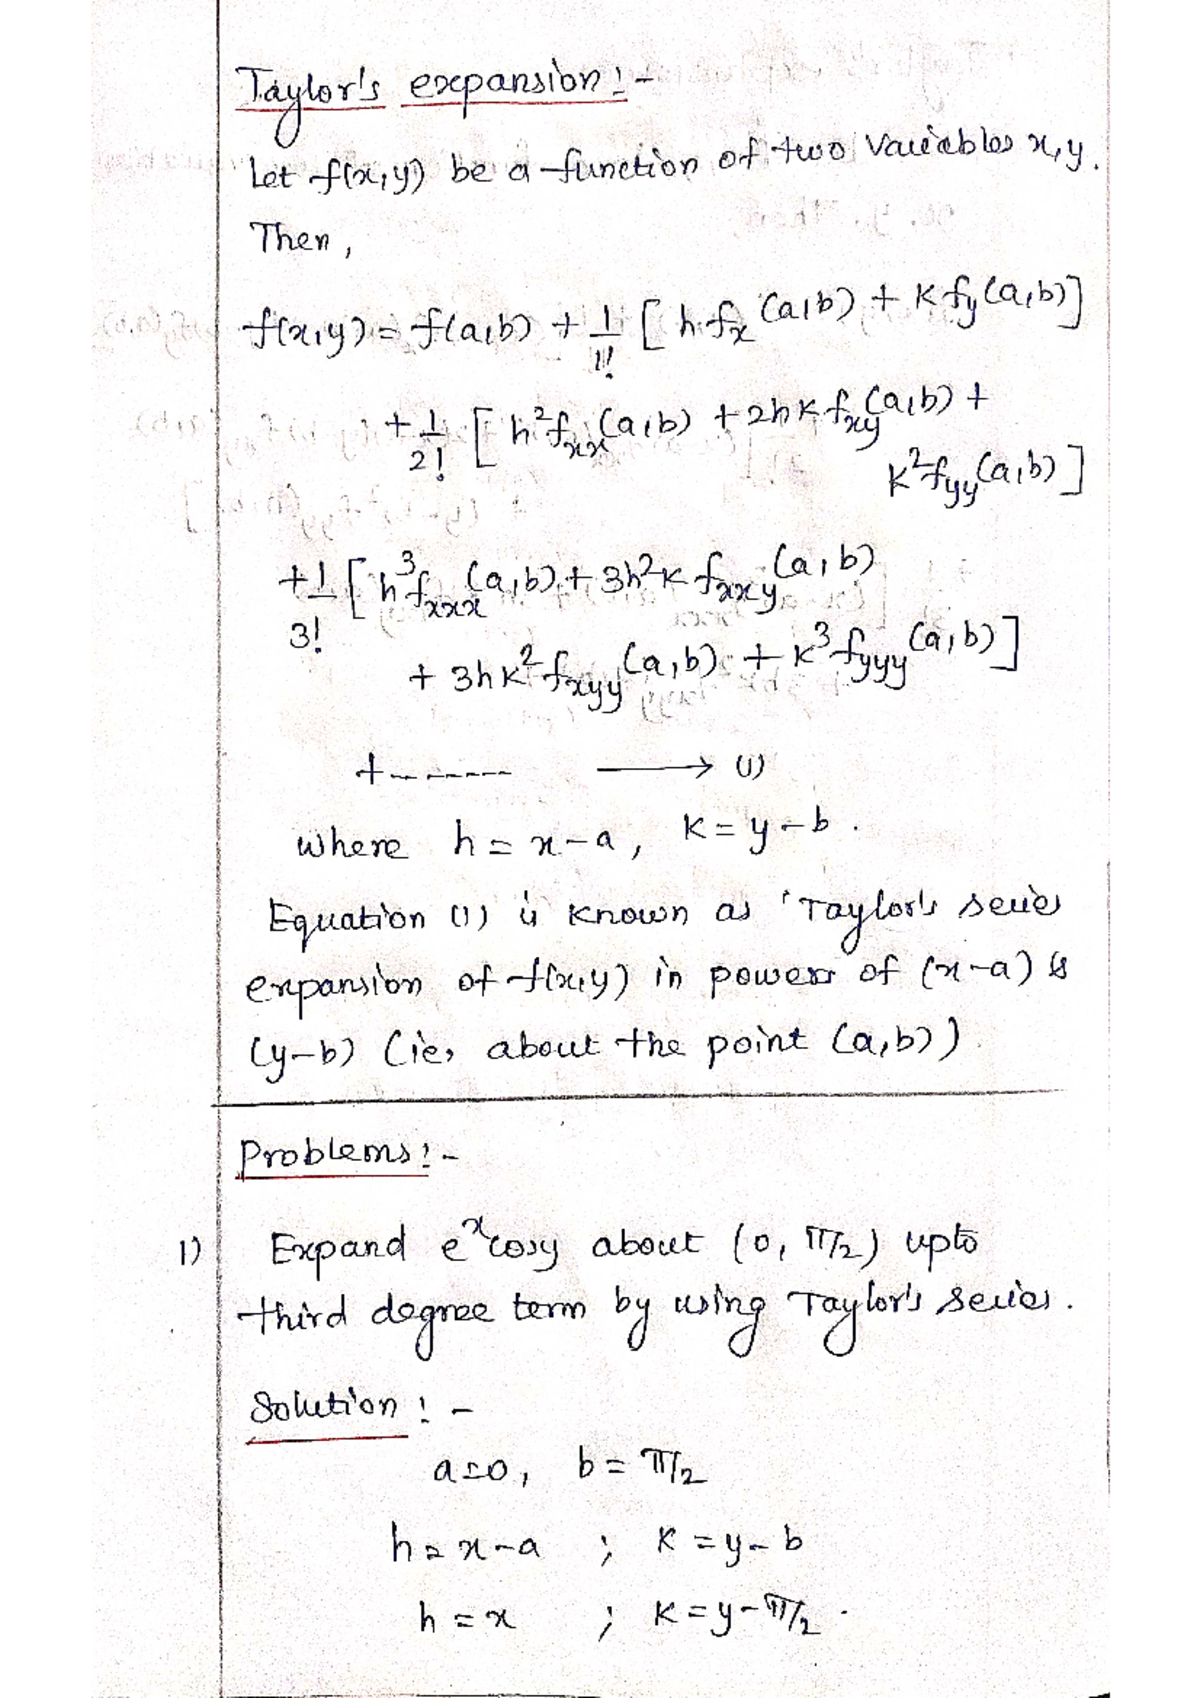 Taylor's expansion :-
Let f(x,y) be a function of two variables x,y.
Then,
f(x,y) = f(a,b) + 1/1! [ h fx (a,b) + k fy (a,b) ]
+ 1/2! [ h² fxx (a,b) + 2hk fxy (a,b) +
k² fyy (a,b) ]
+ 1/3! [ h³ fxxx (a,b) + 3h²k fxxy (a,b)
+ 3hk² fxyy (a,b) + k³ fyyy (a,b) ]
+ - - - - - - - ⟶ (1)
where h = x-a, k = y-b.
Equation (1) is known as 'Taylor's series
expansion of f(x,y) in powers of (x-a) &
(y-b) (ie, about the point (a,b))
Problems :-
1) Expand eˣcosy about (0, π/2) upto
third degree term by using Taylor's series.
Solution :-
a=0, b = π/2
h = x-a ; k = y-b
h = x ; k = y-π/2.